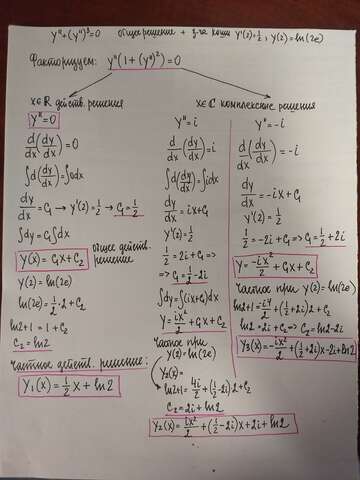 y''+(y'')³=0 общее решение + з-ча Коши y'(2)=½, y(2)=ln(2e)
Факторизуем: y''(1+(y'')²)=0
x∈ℝ действ. решения
y''=0
d/dx(dy/dx)=0
∫d(dy/dx)=∫0dx
dy/dx=C₁→y'(2)=½→C₁=½
∫dy=C₁∫dx
y(x)=C₁x+C₂ общее действ. решение
y(2)=ln(2e)
ln(2e)=½·2+C₂
ln2+1=1+C₂
C₂=ln2
Частное действ. решение:
y₁(x)=½x+ln2
x∈ℂ комплексные решения
y''=i
d/dx(dy/dx)=i
∫d(dy/dx)=∫idx
dy/dx=ix+C₁
y'(2)=½
½=2i+C₁=>
=>C₁=½-2i
∫dy=∫(ix+C₁)dx
y=ix²/2+C₁x+C₂
Частное при
y(2)=ln(2e)
y₂(x)=
ln2+1=4i/2+(½-2i)2+C₂
C₂=2i+ln2
y₂(x)=ix²/2+(½-2i)x+2i+ln2
y''=-i
d/dx(dy/dx)=-i
dy/dx=-ix+C₁
y'(2)=½
½=-2i+C₁=>C₁=½+2i
y=-ix²/2+C₁x+C₂
Частное при y(2)=ln(2e)
ln2+1=-i4/2+(½+2i)2+C₂
ln2=2i+C₂=>C₂=ln2-2i
y₃(x)=-ix²/2+(½+2i)x-2i+ln2